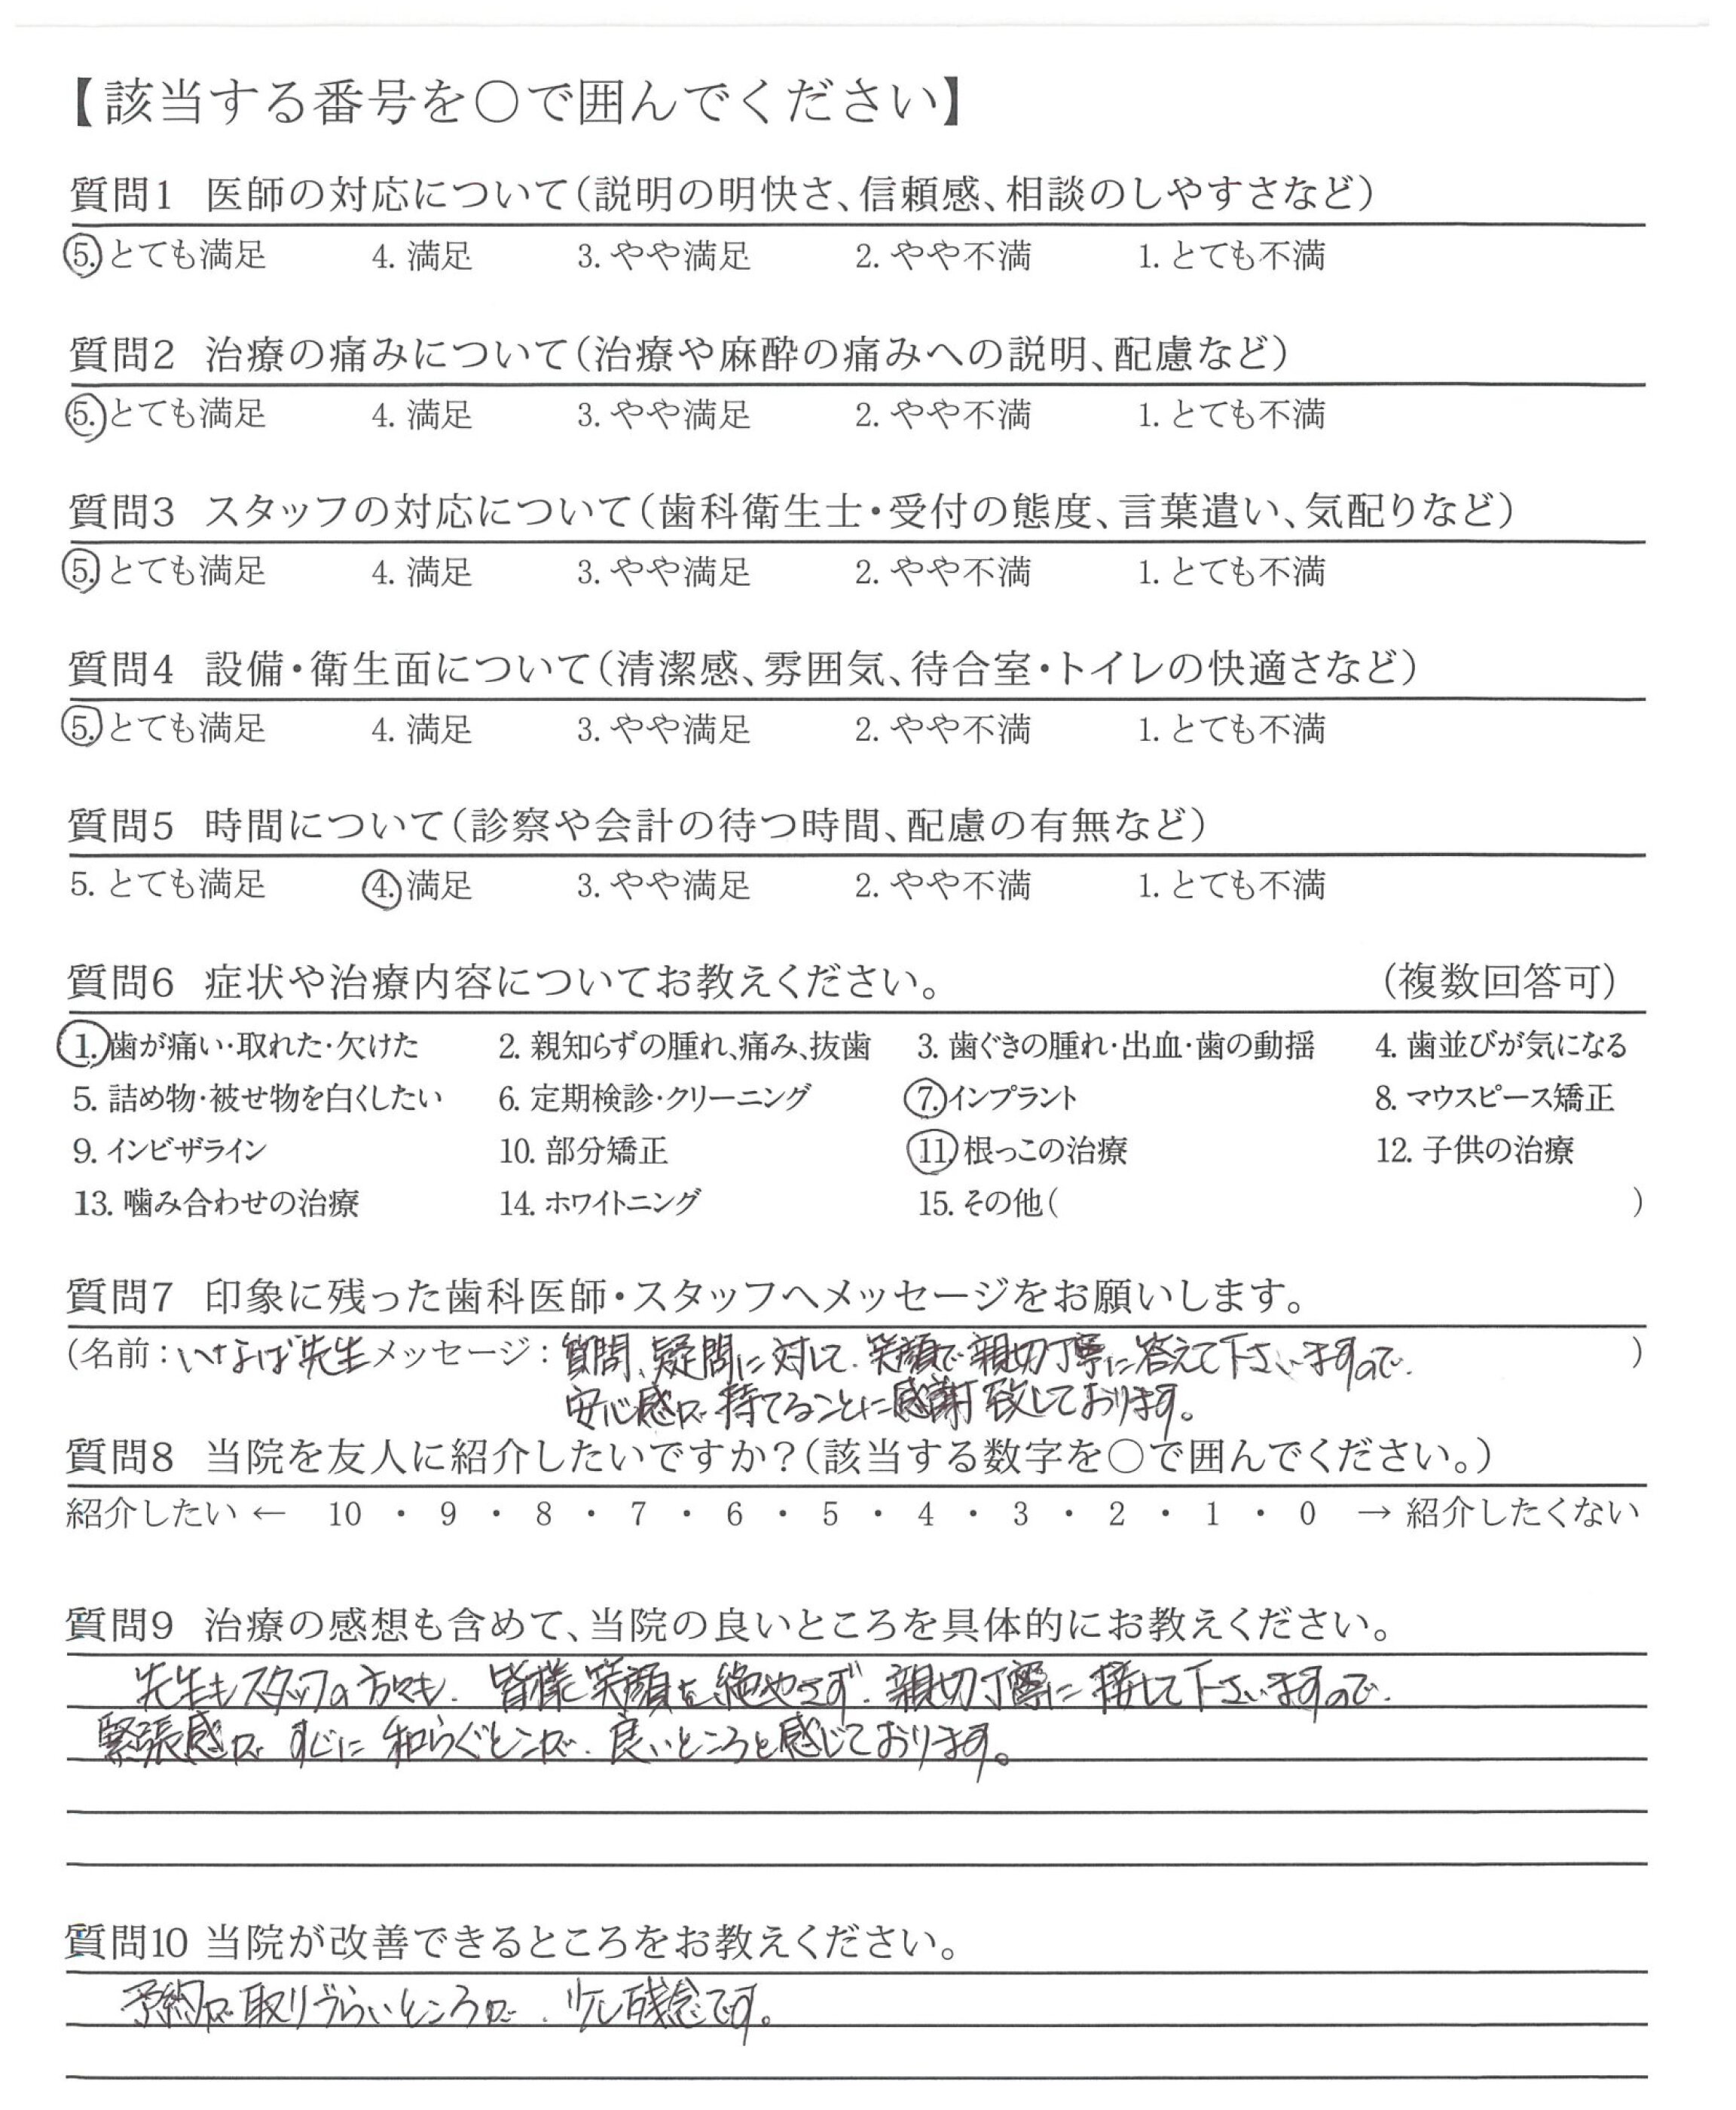 【該当する番号を○で囲んでください】
質問1 医師の対応について(説明の明快さ、信頼感、相談のしやすさなど)
5. とても満足 4. 満足 3. やや満足 2. やや不満 1. とても不満
質問2 治療の痛みについて(治療や麻酔の痛みへの説明、配慮など)
5. とても満足 4. 満足 3. やや満足 2. やや不満 1. とても不満
質問3 スタッフの対応について(歯科衛生士・受付の態度、言葉遣い、気配りなど)
5. とても満足 4. 満足 3. やや満足 2. やや不満 1. とても不満
質問4 設備・衛生面について(清潔感、雰囲気、待合室・トイレの快適さなど)
5. とても満足 4. 満足 3. やや満足 2. やや不満 1. とても不満
質問5 時間について(診察や会計の待つ時間、配慮の有無など)
5. とても満足 4. 満足 3. やや満足 2. やや不満 1. とても不満
質問6 症状や治療内容についてお教えください。 (複数回答可)
1. 歯が痛い・取れた・欠けた 2. 親知らずの腫れ、痛み、抜歯 3. 歯ぐきの腫れ・出血・歯の動揺 4. 歯並びが気になる
5. 詰め物・被せ物を白くしたい 6. 定期検診・クリーニング 7. インプラント 8. マウスピース矯正
9. インビザライン 10. 部分矯正 11. 根っこの治療 12. 子供の治療
13. 噛み合わせの治療 14. ホワイトニング 15. その他( )
質問7 印象に残った歯科医師・スタッフへメッセージをお願いします。
(名前：いなば先生 メッセージ：質問、疑問に対して、笑顔で親切丁寧に答えて下さいますので、 )
安心感が持てることに感謝致しております。
質問8 当院を友人に紹介したいですか？(該当する数字を○で囲んでください。)
紹介したい ← 10 ・ 9 ・ 8 ・ 7 ・ 6 ・ 5 ・ 4 ・ 3 ・ 2 ・ 1 ・ 0 → 紹介したくない
質問9 治療の感想も含めて、当院の良いところを具体的にお教えください。
先生もスタッフの方々も、皆様笑顔を絶やさず、親切丁寧に接して下さいますので、
緊張感がすぐに和らぐとこが、良いところと感じております。
質問10 当院が改善できるところをお教えください。
予約が取りづらいところが、少し残念です。